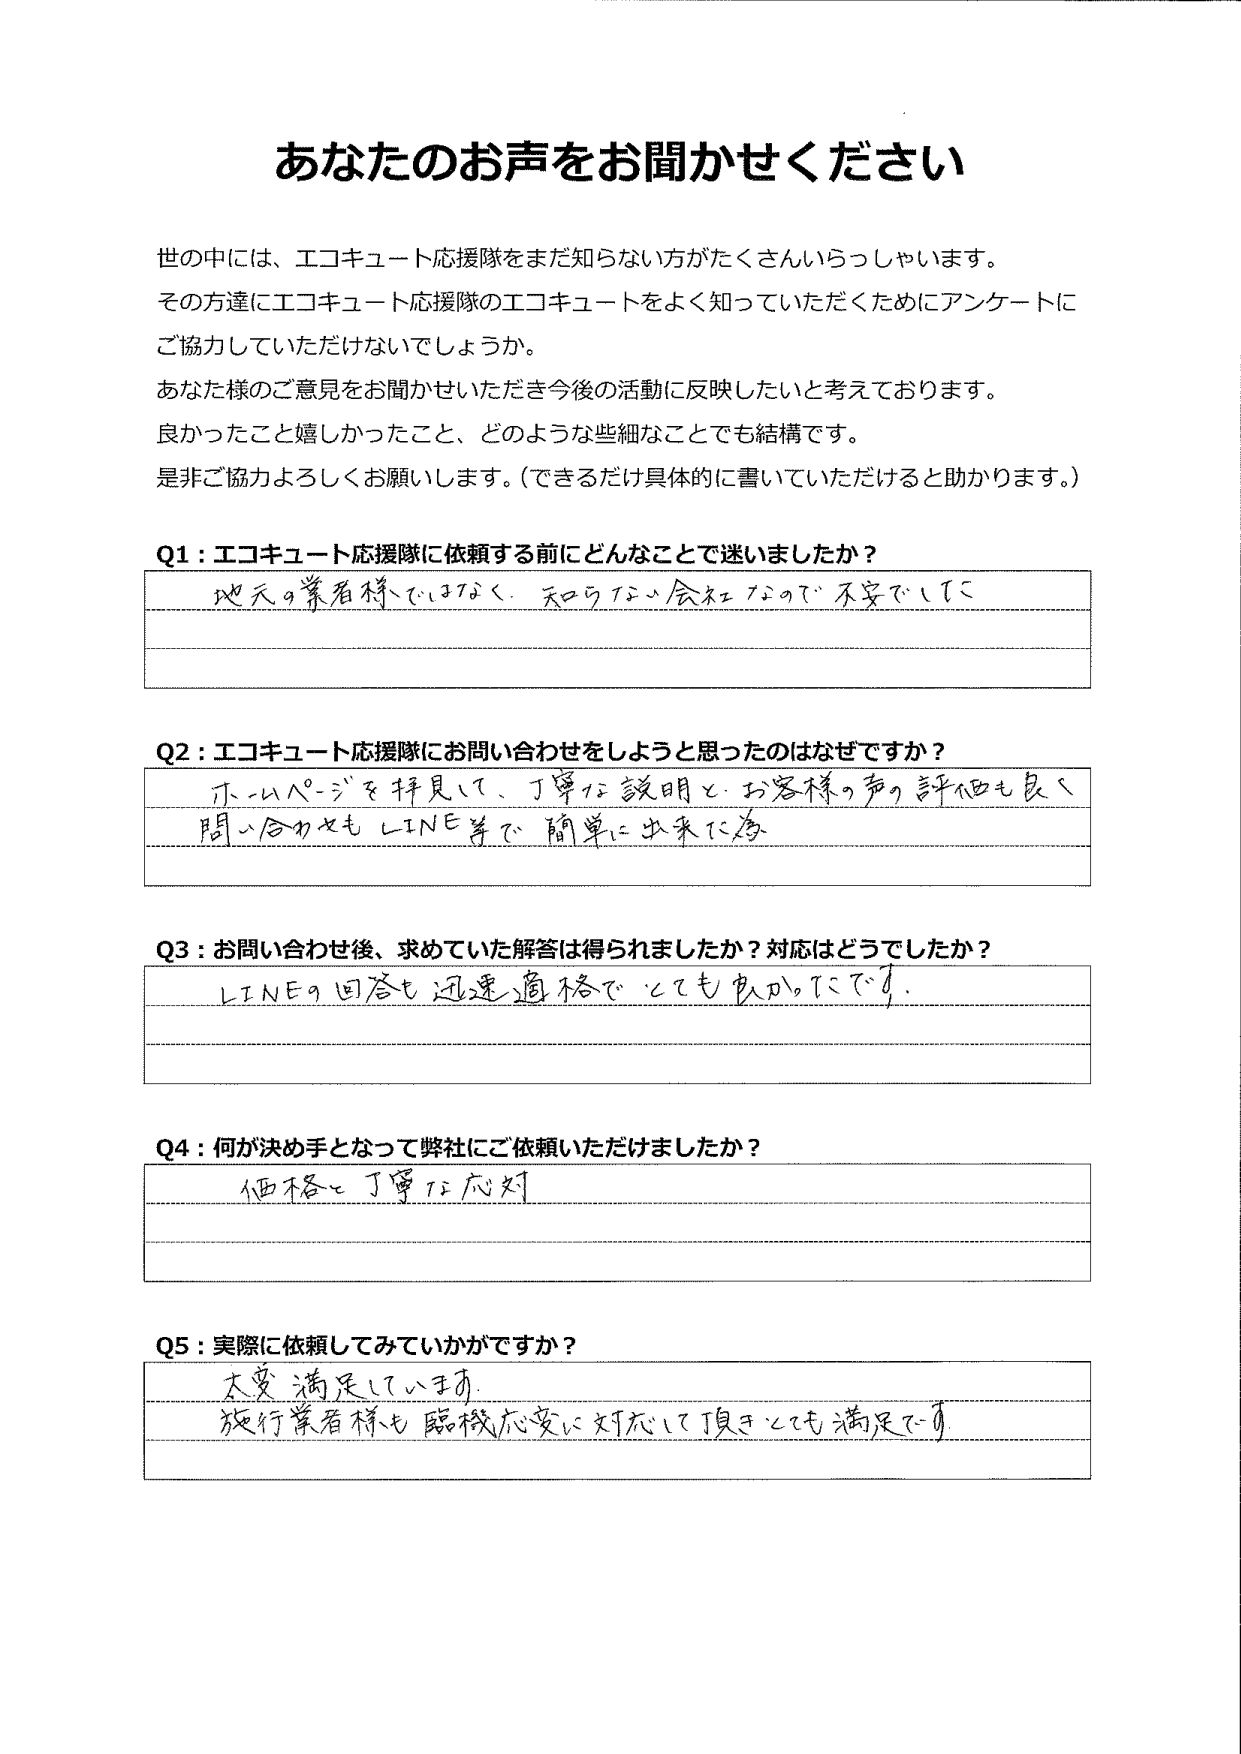 あなたのお声をお聞かせください
世の中には、エコキュート応援隊をまだ知らない方がたくさんいらっしゃいます。
その方達にエコキュート応援隊のエコキュートをよく知っていただくためにアンケートに
ご協力していただけないでしょうか。
あなた様のご意見をお聞かせいただき今後の活動に反映したいと考えております。
良かったこと嬉しかったこと、どのような些細なことでも結構です。
是非ご協力よろしくお願いします。（できるだけ具体的に書いていただけると助かります。）
Q1：エコキュート応援隊に依頼する前にどんなことで迷いましたか？
地元の業者様ではなく、知らない会社なので不安でした
Q2：エコキュート応援隊にお問い合わせをしようと思ったのはなぜですか？
ホームページを拝見して、丁寧な説明と、お客様の声の評価も良く
問い合わせもLINE等で簡単に出来た為
Q3：お問い合わせ後、求めていた解答は得られましたか？対応はどうでしたか？
LINEの回答も迅速適格でとても良かったです.
Q4：何が決め手となって弊社にご依頼いただけましたか？
価格と丁寧な応対
Q5：実際に依頼してみていかがですか？
大変満足しています.
施行業者様も臨機応変に対応して頂きとても満足です